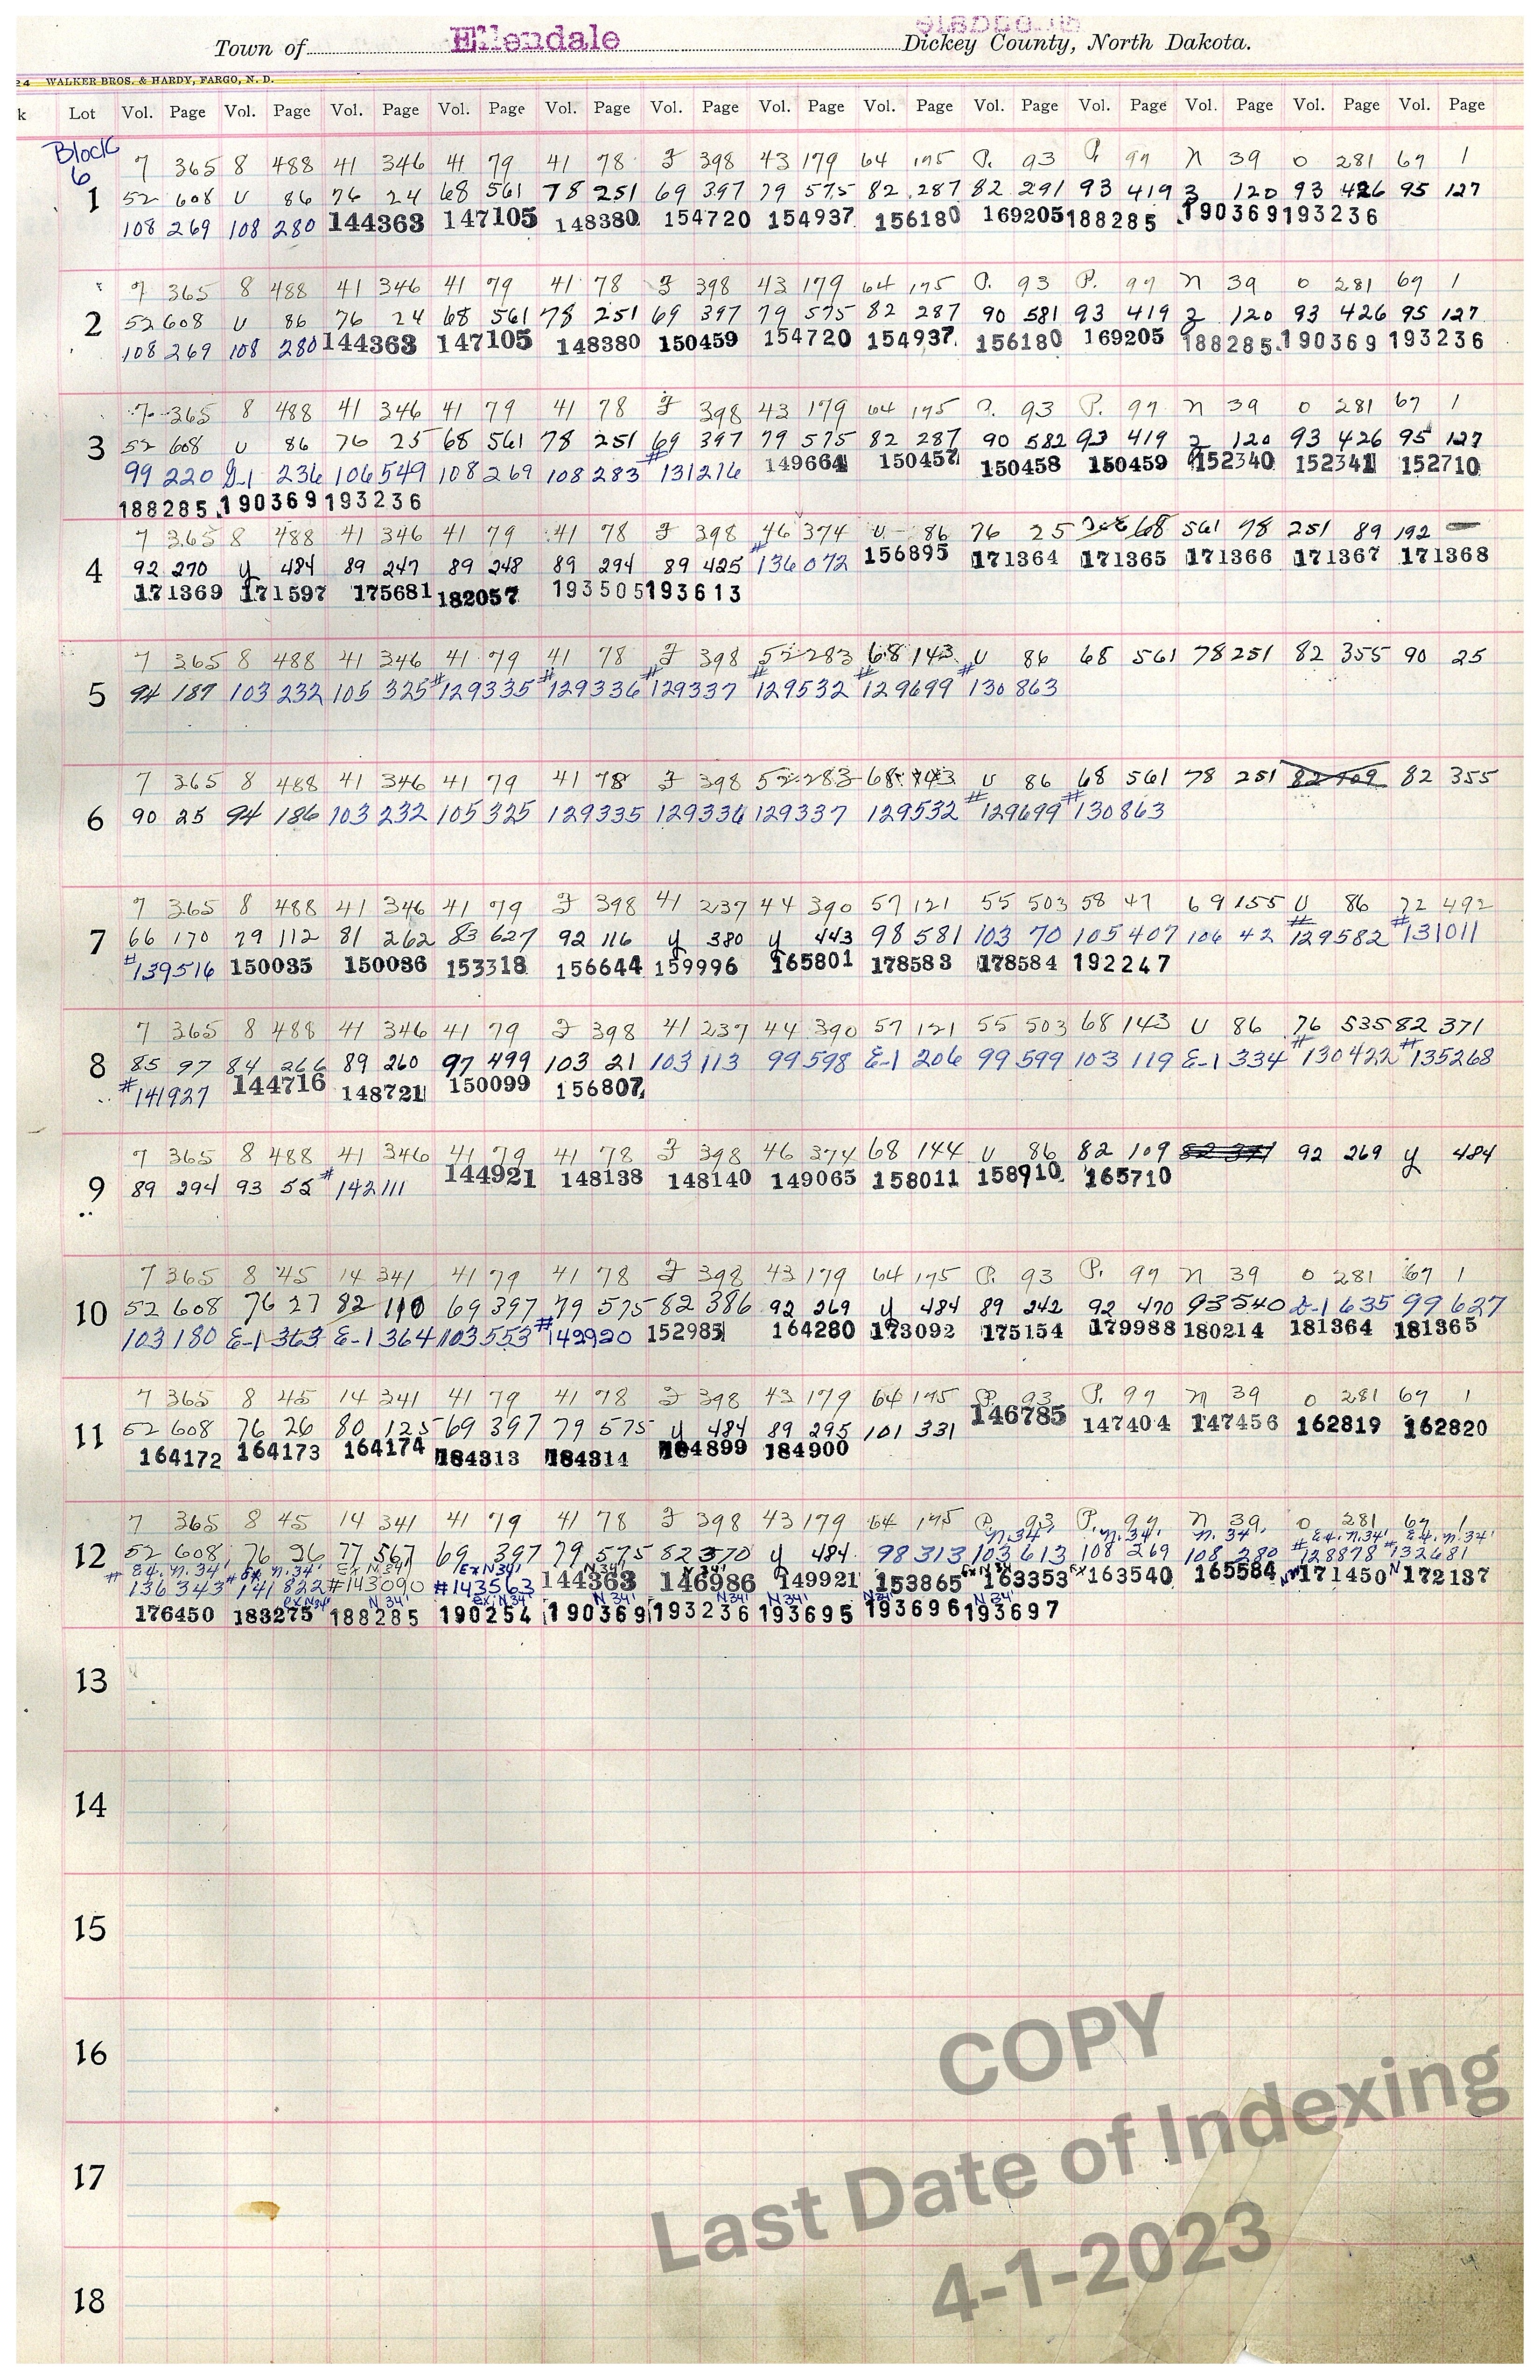 Town of Ellendale Dickey County, North Dakota.
24 WALKER BROS. & HARDY, FARGO, N. D.
k Lot Vol. Page Vol. Page Vol. Page Vol. Page Vol. Page Vol. Page Vol. Page Vol. Page Vol. Page Vol. Page Vol. Page Vol. Page Vol. Page
Block
6
7 365 8 488 41 346 41 79 41 78 F 398 43 179 64 175 P. 93 P. 97 N 39 O 281 67 1
1 52 608 U 86 76 24 68 561 78 251 69 397 79 575 82 287 82 291 93 419 Z 120 93 426 95 127
108 269 108 280 144363 147105 148380 154720 154937 156180 169205 188285 190369 193236
7 365 8 488 41 346 41 79 41 78 F 398 43 179 64 175 P. 93 P. 97 N 39 O 281 67 1
2 52 608 U 86 76 24 68 561 78 251 69 397 79 575 82 287 90 581 93 419 Z 120 93 426 95 127
108 269 108 280 144363 147105 148380 150459 154720 154937 156180 169205 188285 190369 193236
7 365 8 488 41 346 41 79 41 78 F 398 43 179 64 175 P. 93 P. 97 N 39 O 281 67 1
3 52 608 U 86 76 25 68 561 78 251 69 397 79 575 82 287 90 582 93 419 Z 120 93 426 95 127
99 220 D-1 236 106 549 108 269 108 283 #131216 149664 150457 150458 150459 152340 152341 152710
188285 190369 193236
7 365 8 488 41 346 41 79 41 78 F 398 46 374 U 86 76 25 68 561 78 251 89 192
4 92 270 Y 484 89 247 89 248 89 294 89 425 #136072 156895 171364 171365 171366 171367 171368
171369 171597 175681 182057 193505 193613
7 365 8 488 41 346 41 79 41 78 F 398 52 283 68 143 U 86 68 561 78 251 82 355 90 25
5 94 187 103 232 105 325 #129335 #129336 #129337 #129532 #129699 #130863
7 365 8 488 41 346 41 79 41 78 F 398 52 283 68 143 U 86 68 561 78 251 82 109 82 355
6 90 25 94 186 103 232 105 325 129335 129336 129337 129532 #129699 #130863
7 365 8 488 41 346 41 79 F 398 41 237 44 390 57 121 55 503 58 47 69 155 U 86 72 492
7 66 170 79 112 81 262 83 627 92 116 Y 380 Y 443 98 581 103 70 105 407 106 42 #129582 #131011
#139516 150035 150036 153318 156644 159996 165801 178583 178584 192247
7 365 8 488 41 346 41 79 F 398 41 237 44 390 57 121 55 503 68 143 U 86 76 535 82 371
8 85 97 84 266 89 260 97 499 103 21 103 113 99 598 E-1 206 99 599 103 119 E-1 334 #130422 #135268
#141927 144716 148721 150099 156807
7 365 8 488 41 346 41 79 41 78 F 398 46 374 68 144 U 86 82 109 82 371 92 269 Y 484
9 89 294 93 55 #142111 144921 148138 148140 149065 158011 158910 165710
7 365 8 45 14 341 41 79 41 78 F 398 43 179 64 175 P. 93 P. 97 N 39 O 281 67 1
10 52 608 76 27 82 110 69 397 79 575 82 386 92 269 Y 484 89 242 92 470 93 540 D-1 635 99 627
103 180 E-1 363 E-1 364 103 553 #142920 152985 164280 173092 175154 179988 180214 181364 181365
7 365 8 45 14 341 41 79 41 78 F 398 43 179 64 175 P. 93 P. 97 N 39 O 281 67 1
11 52 608 76 26 80 125 69 397 79 575 Y 484 89 295 101 331 146785 147404 147456 162819 162820
164172 164173 164174 184313 184314 184899 184900
7 365 8 45 14 341 41 79 41 78 F 398 43 179 64 175 P. 93 P. 97 N 39 O 281 67 1
N.34' N.34' N.34' Ex. N.34' Ex. N.34'
12 52 608 76 26 77 567 69 397 79 575 82 370 Y 484 98 313 103 613 108 269 108 280 #128878 #132681
Ex. N.34' Ex. N.34' Ex N34' Ex N34' N34' N34' Ex N34'
#136343 #141822 #143090 #143563 144363 146986 149921 153865 163353 Ex 163540 165584 171450 172137
Ex N34' N 34' Ex. N 34' N 34' N34' N34' N34' N34'
176450 183275 188285 190254 190369 193236 193695 193696 193697
13
14
15
16
17
18
COPY
Last Date of Indexing
4-1-2023